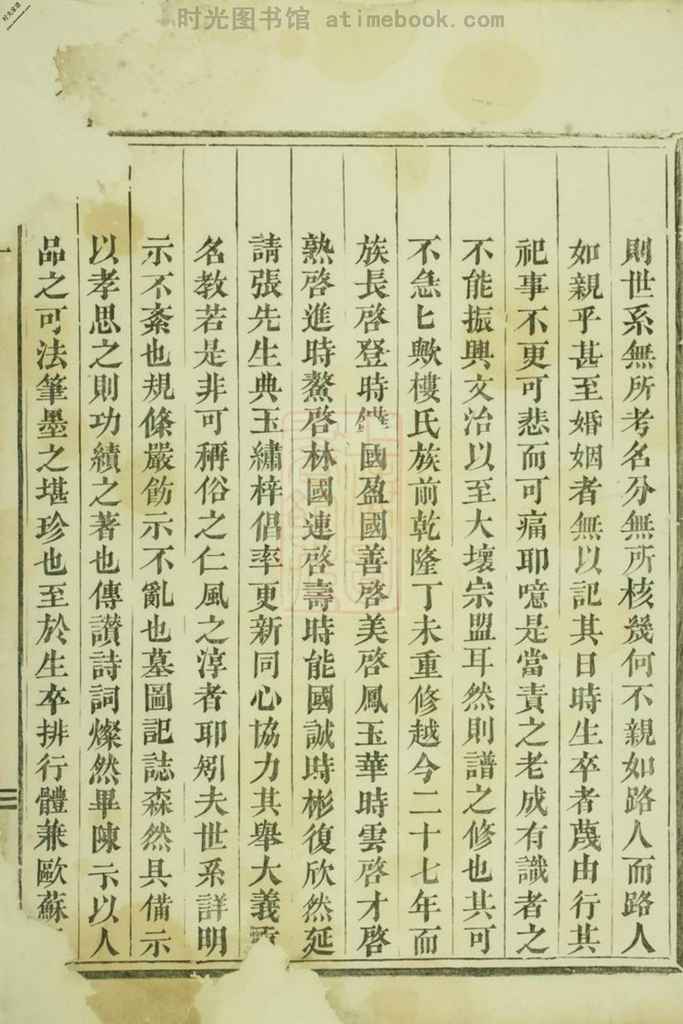 时光图书馆 atimebook.com
則世系無所考名分無所核幾何不親如路人而路人
如親乎甚至婚姻者無以記其日時生卒者蔑由行其
祀事不更可悲而可痛耶噫是當責之老成有識者之
不能振興文治以至大壞宗盟耳然則譜之修也其可
不急乜歟樓氏族前乾隆丁未重修越今二十七年而
族長啓登時國盈國善啓美啓鳳玉華時雲啓才啓
熟啓進時鰲啓林國連啓壽時能國誠時彬復欣然延
請張先生典玉繡梓倡率更新同心協力其舉大義
名教若是非可稱俗之仁風之淳者耶矧夫世系詳明
示不紊也規條嚴飭示不亂也墓圖記誌森然具備示
以孝思之則功績之著也傳讚詩詞燦然畢陳示以人
品之可法筆墨之堪珍也至於生卒排行體兼歐蘇